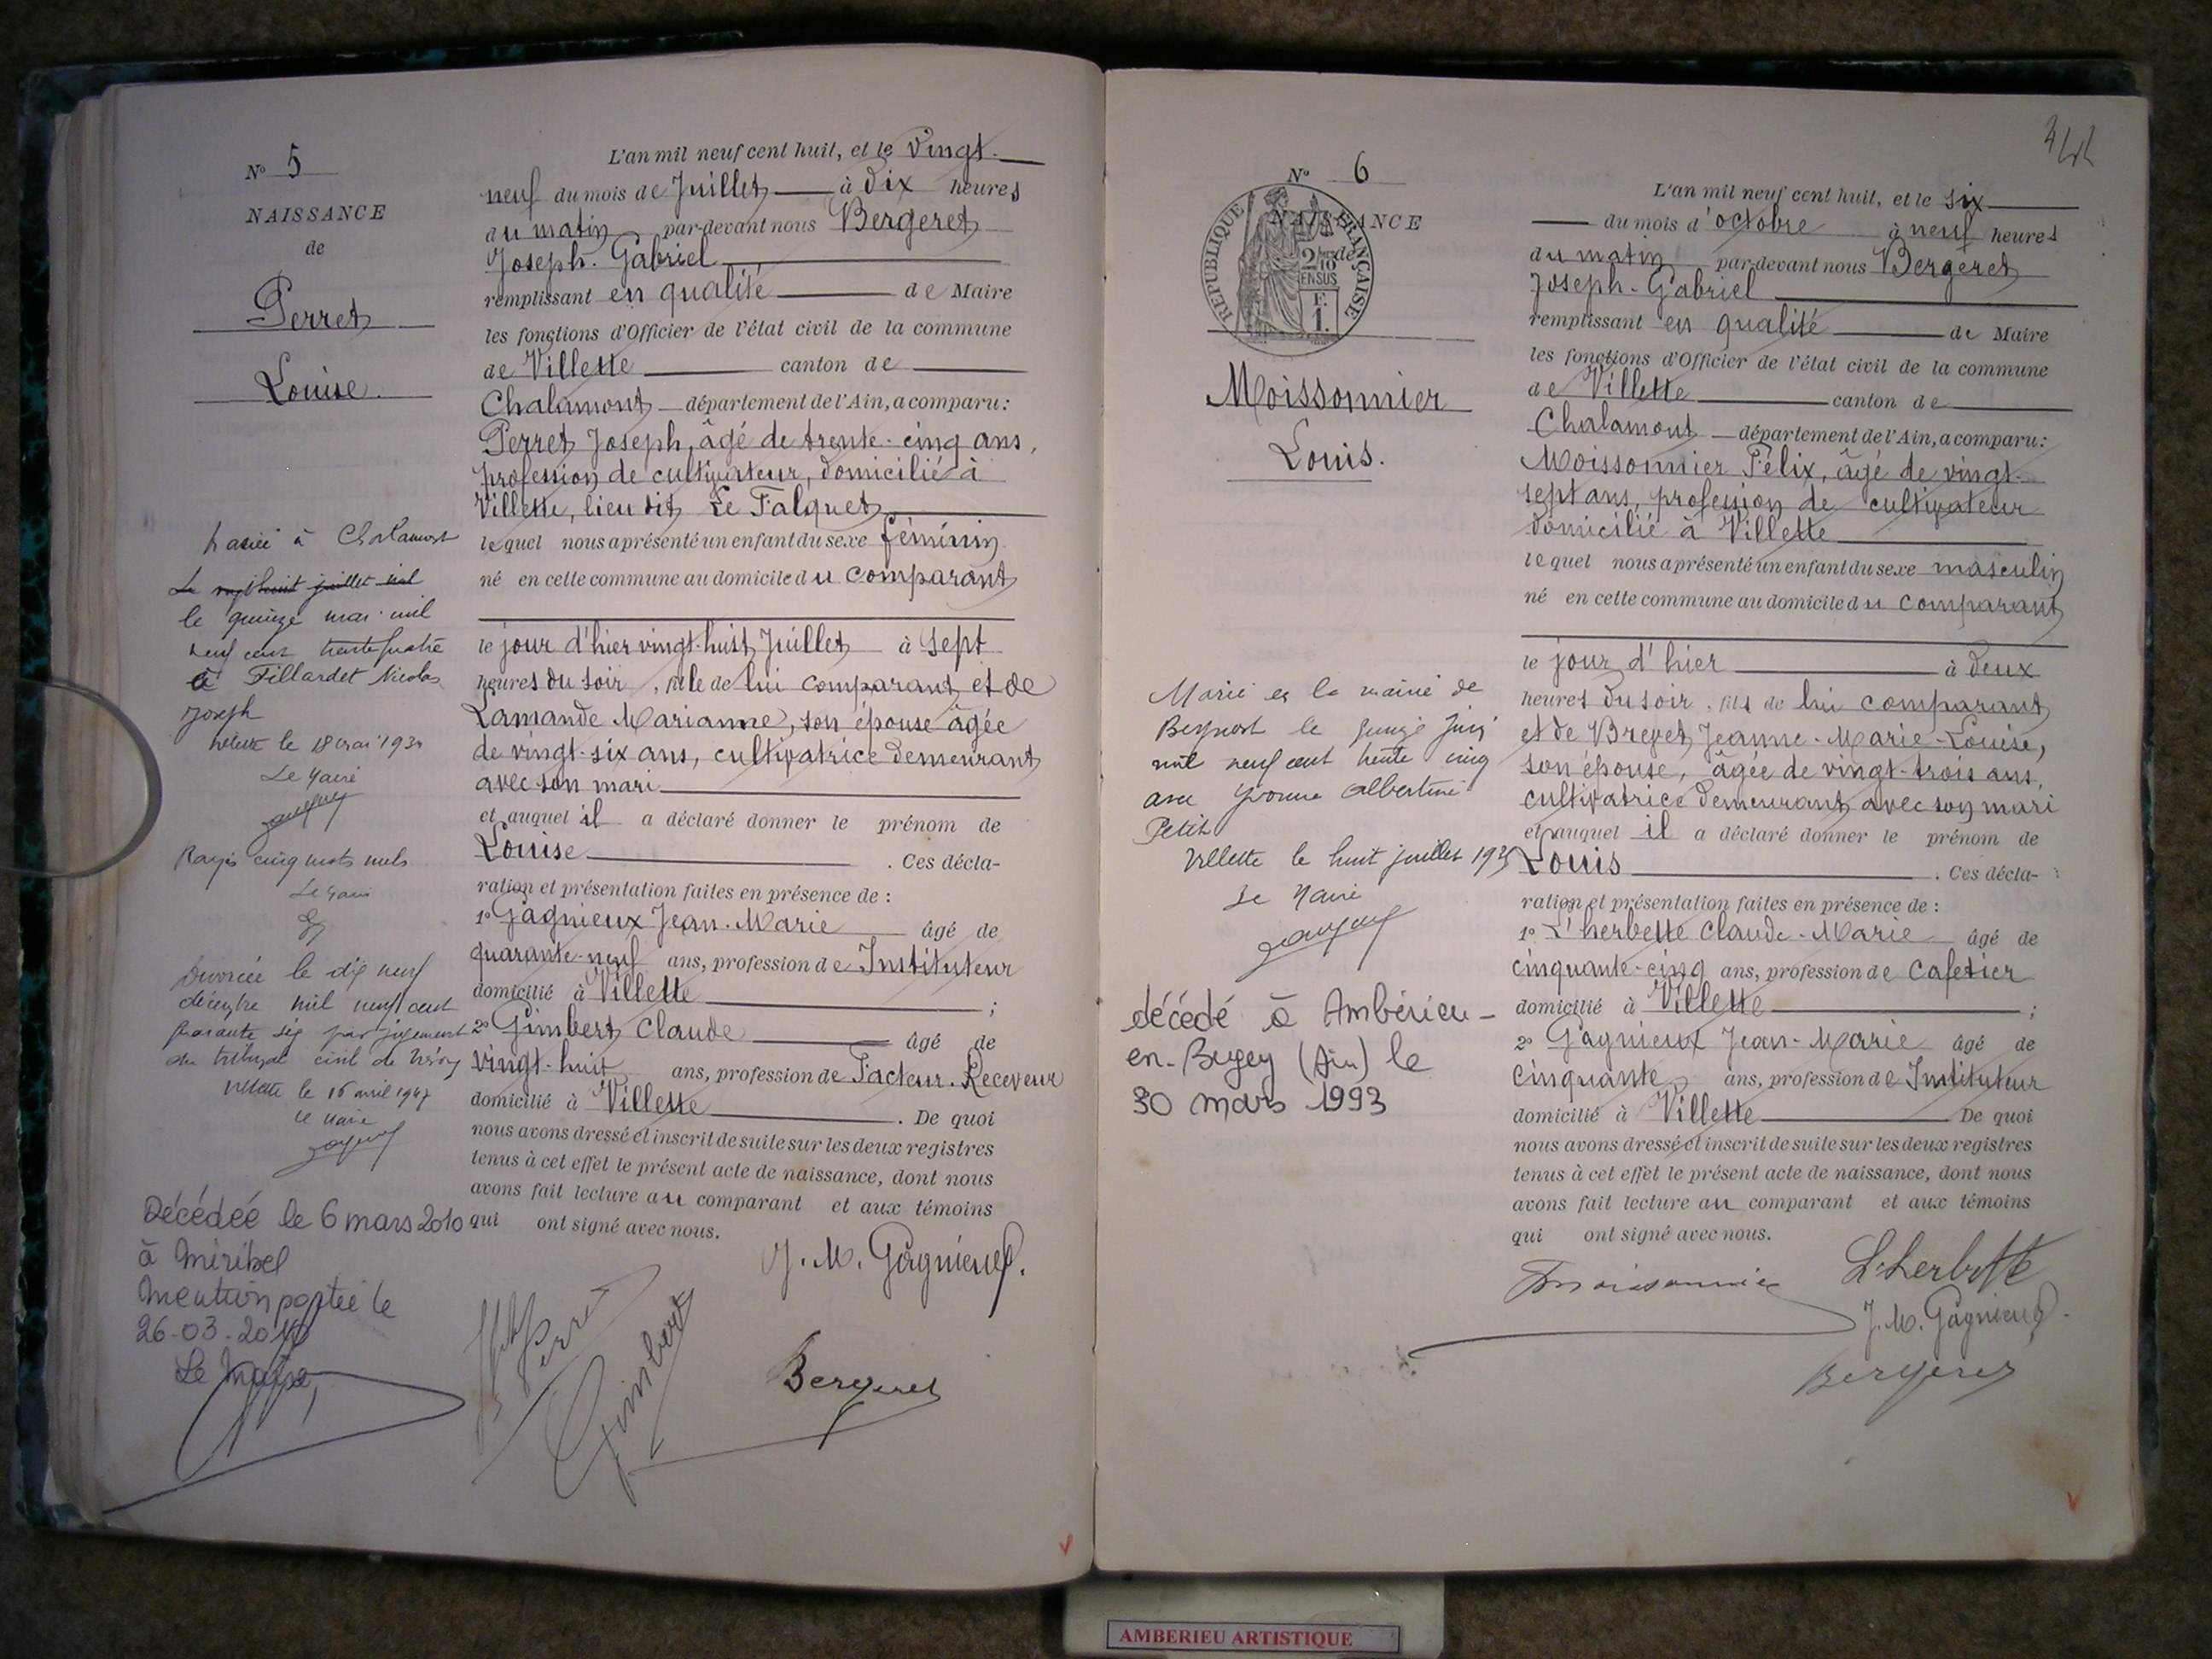 N° 5
NAISSANCE
de
Perret
Louise.
L'an mil neuf cent huit, et le vingt-
neuf du mois de Juillet à dix heures
du matin par-devant nous Bergeret
Joseph-Gabriel
remplissant en qualité de Maire
les fonctions d'Officier de l'état civil de la commune
de Villette canton de
Chalamont département de l'Ain, a comparu:
Perret Joseph, âgé de trente-cinq ans,
profession de cultivateur, domicilié à
Villette, lieu dit Le Falquet
lequel nous a présenté un enfant du sexe féminin
né en cette commune au domicile du comparant
le jour d'hier vingt-huit Juillet à sept
heures du soir, fille de lui comparant et de
Lamande Marianne, son épouse âgée
de vingt-six ans, cultivatrice demeurant
avec son mari
et auquel il a déclaré donner le prénom de
Louise. Ces décla-
ration et présentation faites en présence de:
1° Gagnieux Jean-Marie âgé de
quarante-neuf ans, profession de Instituteur
domicilié à Villette;
2° Gimbert Claude âgé de
vingt-huit ans, profession de Facteur-Receveur
domicilié à Villette. De quoi
nous avons dressé et inscrit de suite sur les deux registres
tenus à cet effet le présent acte de naissance, dont nous
avons fait lecture au comparant et aux témoins
qui ont signé avec nous.
J. M. Gagnieux.
Perret
Gimbert
Bergeret
Mariée à Chalamont
Le vingt huit juillet mil
le quinze mai mil
neuf cent trente quatre
à Fillardet Nicolas
Joseph
Villette le 18 mai 1934
Le Maire
Rayés cinq mots nuls
Le Maire
Divorcée le dix neuf
décembre mil neuf cent
quarante six par jugement
du tribunal civil de
Villette le 16 avril 1947
Le Maire
Décédée le 6 mars 2010
à Miribel
Mention portée le
26-03-2010
Le Maire,
344
N° 6
NAISSANCE
de
REPUBLIQUE FRANÇAISE
2/10
EN SUS
F.
1.
Moissonnier
Louis.
L'an mil neuf cent huit, et le six
du mois d'octobre à neuf heures
du matin par-devant nous Bergeret
Joseph-Gabriel
remplissant en qualité de Maire
les fonctions d'Officier de l'état civil de la commune
de Villette canton de
Chalamont département de l'Ain, a comparu:
Moissonnier Félix, âgé de vingt-
sept ans, profession de cultivateur
domicilié à Villette
lequel nous a présenté un enfant du sexe masculin
né en cette commune au domicile du comparant
le jour d'hier à deux
heures du soir, fils de lui comparant
et de Brevet Jeanne-Marie-Louise,
son épouse, âgée de vingt-trois ans,
cultivatrice demeurant avec son mari
et auquel il a déclaré donner le prénom de
Louis. Ces décla-
ration et présentation faites en présence de:
1° L'herbette Claude-Marie âgé de
cinquante-cinq ans, profession de Cafetier
domicilié à Villette;
2° Gagnieux Jean-Marie âgé de
cinquante ans, profession de Instituteur
domicilié à Villette De quoi
nous avons dressé et inscrit de suite sur les deux registres
tenus à cet effet le présent acte de naissance, dont nous
avons fait lecture au comparant et aux témoins
qui ont signé avec nous.
Moissonnier
L'herbette
J. M. Gagnieux.
Bergeret
Marié en la mairie de
Beynost le quinze juin
mil neuf cent trente cinq
avec Yvonne Albertine
Petit
Villette le huit juillet 1935
Le Maire
décédé à Ambérieu-
en-Bugey (Ain) le
30 mars 1993
AMBERIEU ARTISTIQUE